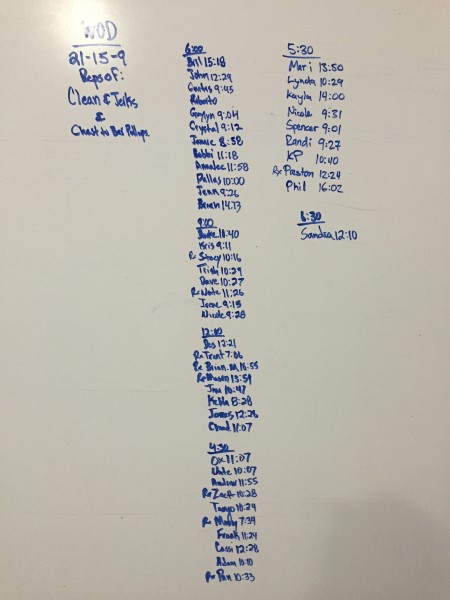 WOD
21-15-9
Reps of:
Clean & Jerks
&
Chest to Bar Pullups
6:00
Bill 15:18
John 12:29
Curtis 9:45
Roberto
Gwylyn 9:04
Crystal 9:12
Jennie 8:58
Bobbi 11:18
Annalee 11:58
Dallas 10:00
Jenn 9:26
Brian 14:13
9:00
11:40
Kris 9:11
Rx Stacy 10:16
Trish 10:29
Dave 10:27
Rx Nate 11:26
Irene 9:15
Nicole 9:28
12:10
Des 12:21
Rx Trent 7:06
Rx Brian.M 16:55
Rx Mason 13:59
Jim 10:47
Kella 8:28
James 12:28
Chad 11:07
4:30
Ox 11:07
Nate 10:07
Andrew 11:55
Rx Zach 10:28
Tanya 10:29
Rx Molly 7:34
Frank 11:24
Cassi 12:28
Adam 10:10
Rx Pan 10:33
5:30
Mari 13:50
Lynda 10:29
Kayla 14:00
Nicole 9:31
Spencer 9:01
Randi 9:27
KP 10:40
Rx Preston 12:24
Phil 16:02
6:30
Sandra 12:10